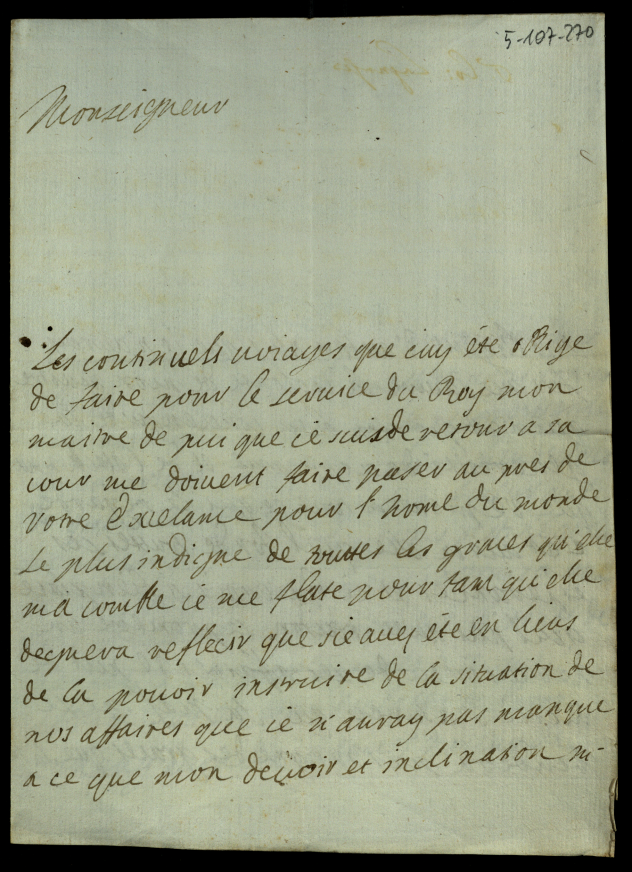 5-107-270
Monseigneur
Les continuels voiayes que ciay été oblige
de faire pour le service du Roy mon
maitre de pui que ie suis de retour a sa
cour me doivent faire passer au pres de
votre Exelance pour l'home du monde
Le plus indigne de touttes les graces qu'elle
m'a comble ie me flate pour tant qu'elle
degnera reflecir que si e avey été en lieus
de la pouvoir instruire de la situation de
nos affaires que ie n'auray pas manque
a ce que mon devoir et inclination m-